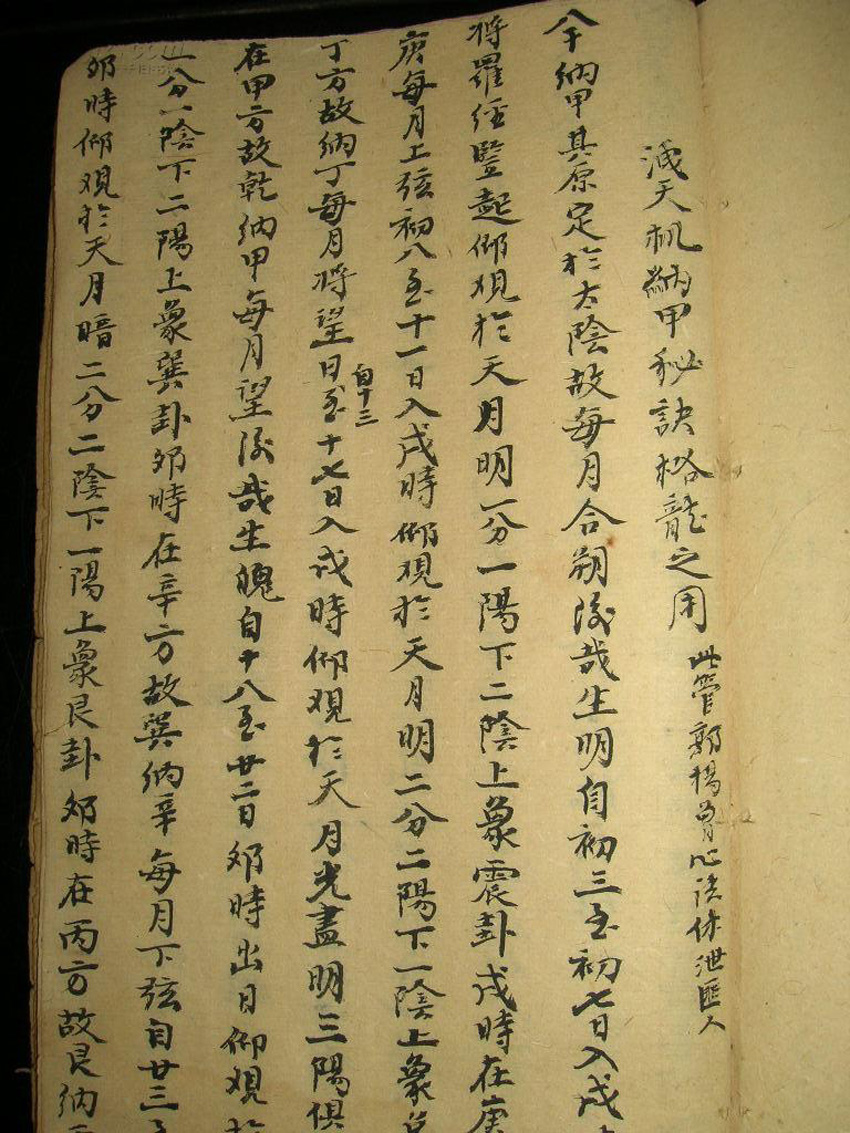 天机納甲秘訣格龍之用 此管郭楊曾心法休泄匪人
納甲其原定於太陰故每月合朔後哉生明自初三至初七日入戌
将羅経豎起仰观於天月明一分一陽下二陰上象震卦戌時在庚
庚每月上弦初八至十一日入戌時仰观於天月明二分二陽下一陰上象
丁方故納丁每月将望日自十三至十七日入戌時仰观於天月光盡明三陽俱
在甲方故乾納甲每月望後哉生魄自十八至廿二日夘時出日仰观於
一分一陰下二陽上象巽卦夘時在辛方故巽納辛每月下弦自廿三至
夘時仰观於天月暗二分二陰下一陽上象艮卦夘時在丙方故艮納